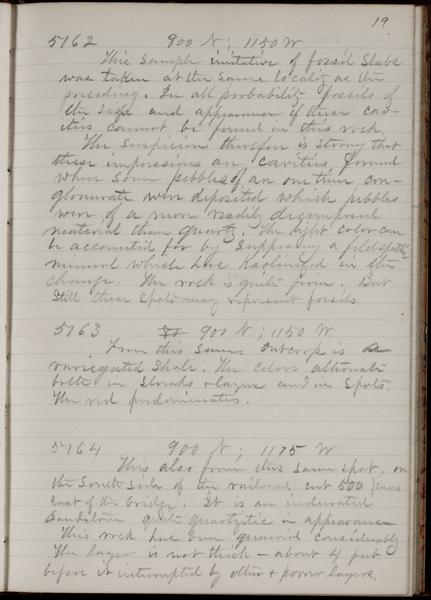 19
5162 900 N; 1150 W
This sample imitative of fossil slabs
was taken at the same locality as the
preceding. In all probability fossils of
the size and appearance of these cav-
ities cannot be found in this rock.
The suspicion therefore is strong that
these impressions are cavities formed
when some pebbles of an one time con-
glomerate were deposited which pebbles
were of a more readily decomposed
material than quartz. The light color can
be accounted for by supposing a feldspathic
mineral which have Kaolinized in the
change. The rock is quite firm. But
still these spots may represent fossils.
5163 900 N; 1150 W.
From this same outcrop is a
variegated shale. The colors alternate
both in streaks + layers and in spots.
The red predominates.
5164 900 N; 1175 W
This also from this same spot, on
the South side of the railroad cut 500 paces
east of the bridge. It is an indurated
Sandstone quite quartzitic in appearance
This rock has been quarried considerably
The layer is not thick - about 4 feet
before it interrupted by other + poorer layers.